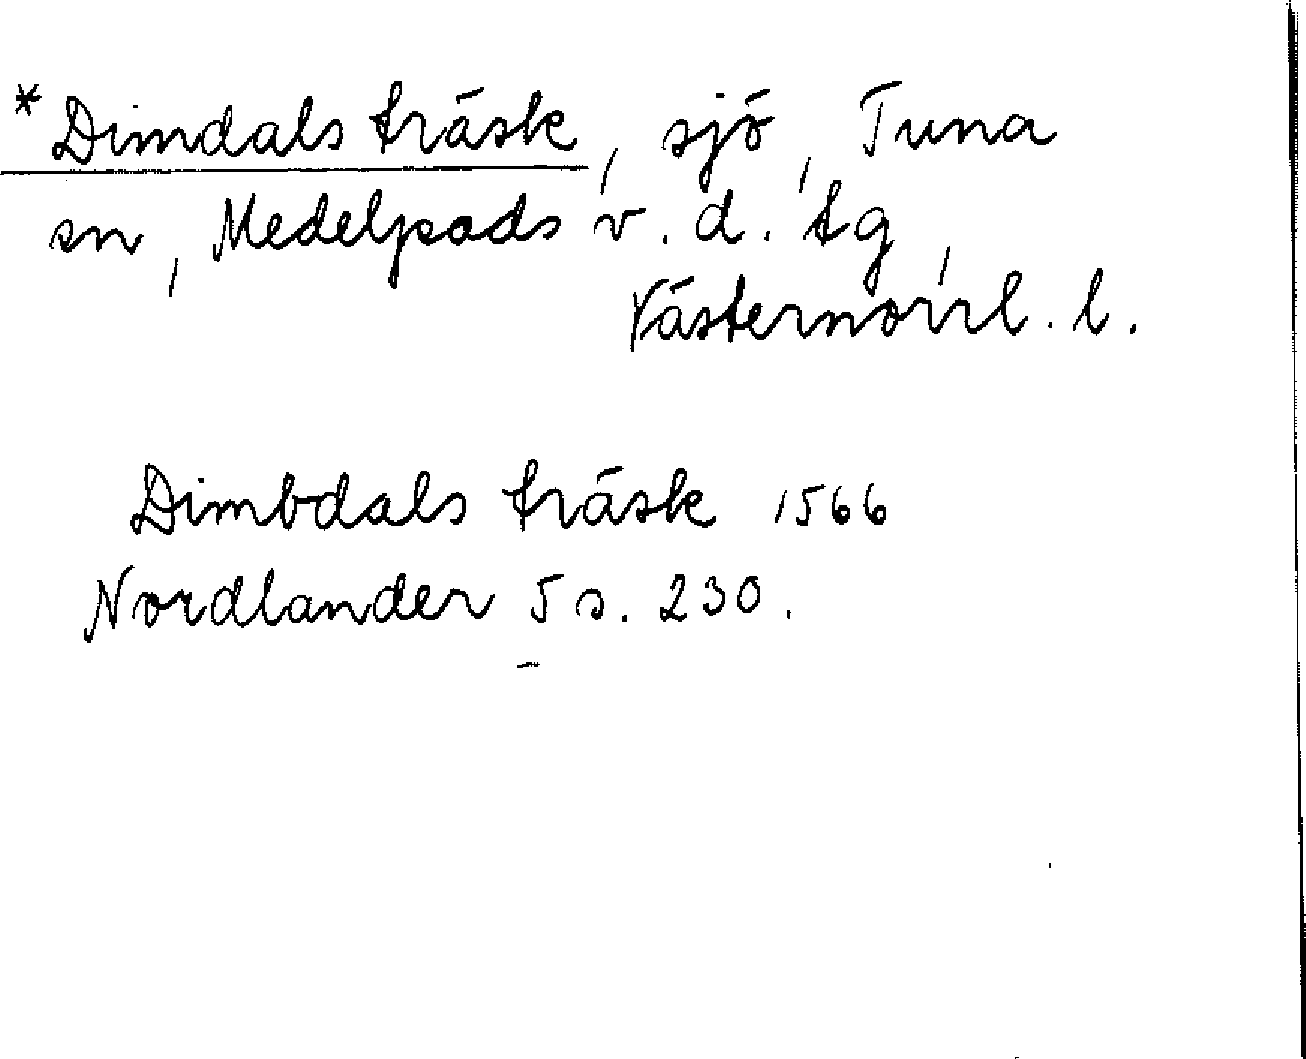 *Dimdals träsk, sjö, Tuna
sn, Medelpads v. d. tg,
Västernorrl. l.
Dimbdals träsk 1566
Nordlander 5 s. 230.